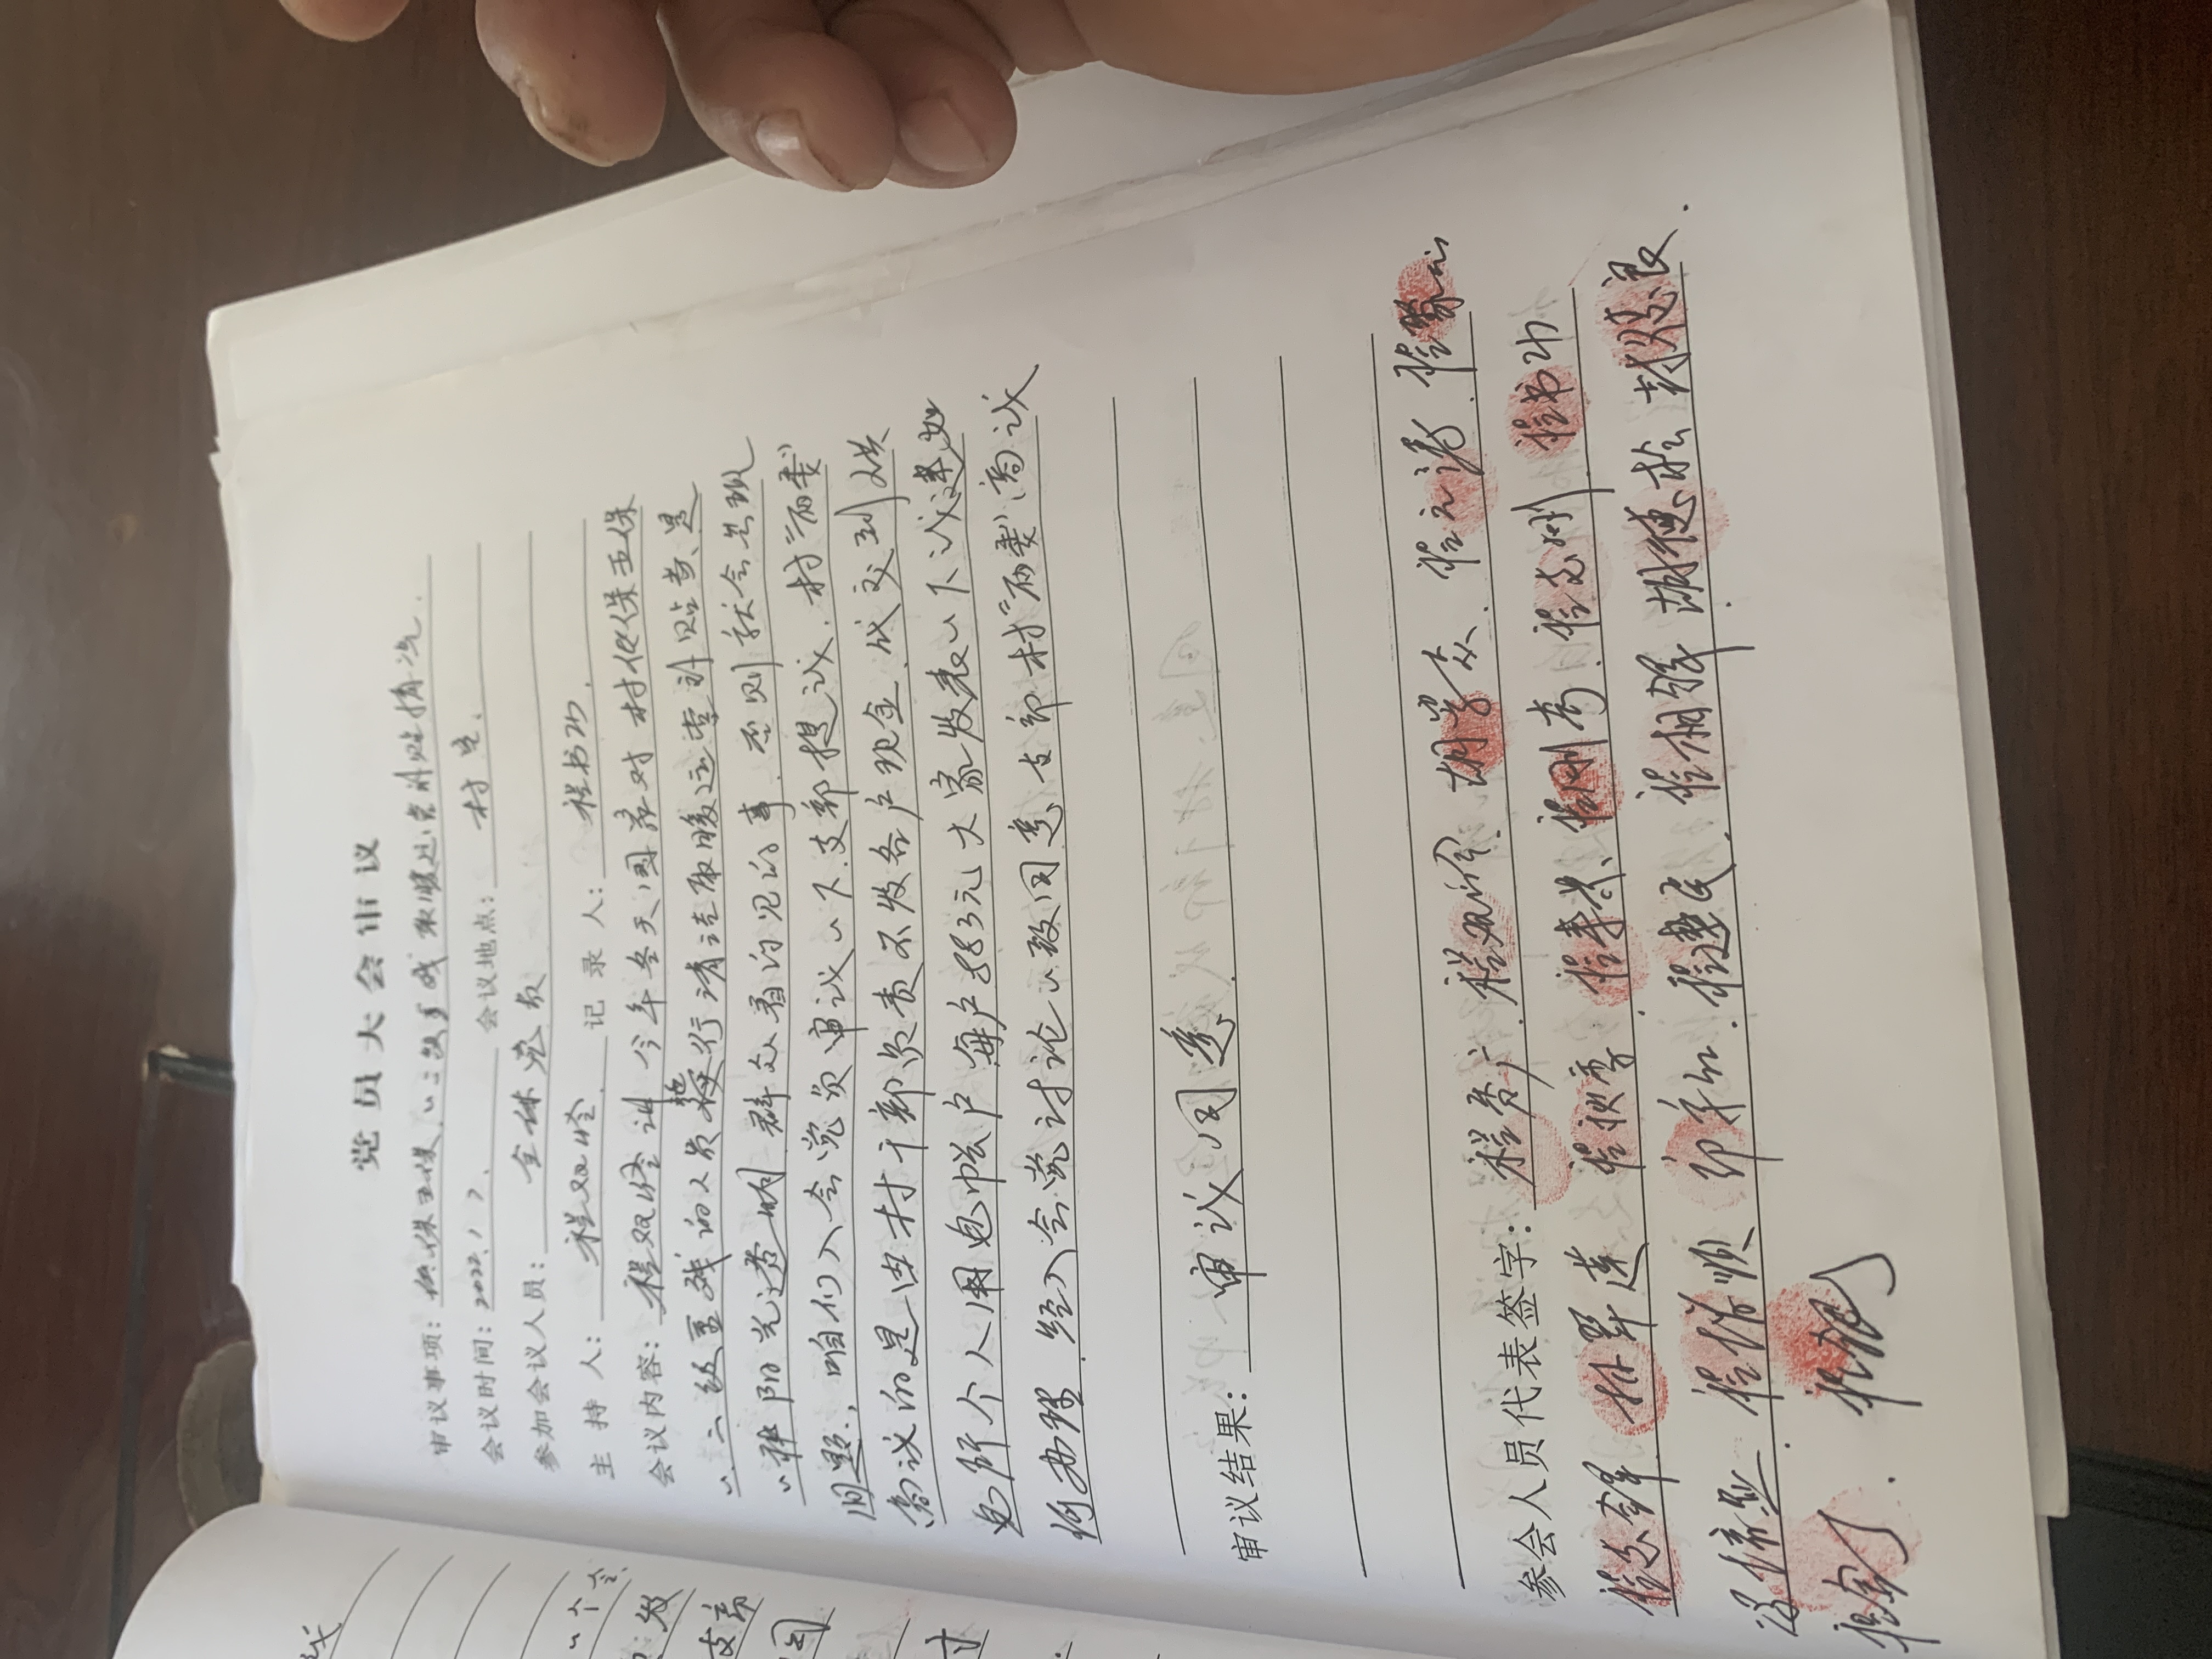 党员大会审议
审议事项: 低保五保、一二级重残取暖运营补贴情况.
会议时间: 2022.1 7. 会议地点: 村宅.
参加会议人员: 全体党员
主持人: 程双岭. 记录人: 程书功.
会议内容: 程双岭讲 今年冬天国家对村低保五保
一.二级重残的人员进行清洁取暖运营补贴费、是
一种阳光透明 群众看的见的事. 否则就会出现
问题., 咱们入会党员审议一下.支部提议. 村"两委"
商议的是由村干部负责不发各户现金、代交到供
电所个人用电帐户 每户883元 大家发表一下议建如
何办理. 经入会党讨论一致同意支部村"两委"商议
审议结果: 审议同意.
参会人员代表签字: 程秀广. 程双岭. 胡学众. 程元涛. 程聚
程志锋. 林翠莲 程秋季. 程 程刚 . 程志刚. 程书功
程增顺 程建民. 程相锋 胡德栓 封 良.
程金 . 程银